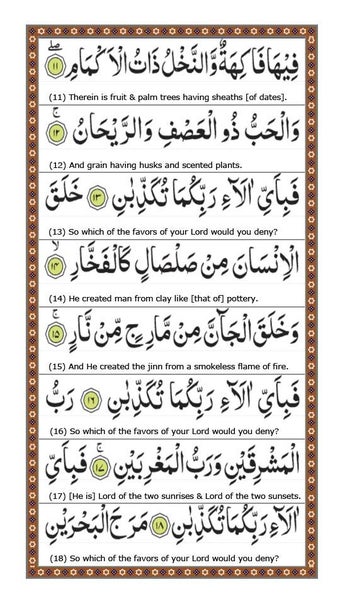 فِيْهَا فَاكِهَةٌ وَّالنَّخْلُ ذَاتُ الْاَكْمَامِ ۖ ۱۱
(11) Therein is fruit & palm trees having sheaths [of dates].
وَالْحَبُّ ذُو الْعَصْفِ وَالرَّيْحَانُ ۚ ۱۲
(12) And grain having husks and scented plants.
فَبِاَيِّ اٰلَآءِ رَبِّكُمَا تُكَذِّبٰنِ ۱۳ خَلَقَ
(13) So which of the favors of your Lord would you deny?
الْاِنْسَانَ مِنْ صَلْصَالٍ كَالْفَخَّارِ ۙ ۱۴
(14) He created man from clay like [that of] pottery.
وَخَلَقَ الْجَآنَّ مِنْ مَّارِجٍ مِّنْ نَّارٍ ۚ ۱۵
(15) And He created the jinn from a smokeless flame of fire.
فَبِاَيِّ اٰلَآءِ رَبِّكُمَا تُكَذِّبٰنِ ۱۶ رَبُّ
(16) So which of the favors of your Lord would you deny?
الْمَشْرِقَيْنِ وَرَبُّ الْمَغْرِبَيْنِ ۚ ۱۷ فَبِاَيِّ
(17) [He is] Lord of the two sunrises & Lord of the two sunsets.
اٰلَآءِ رَبِّكُمَا تُكَذِّبٰنِ ۱۸ مَرَجَ الْبَحْرَيْنِ
(18) So which of the favors of your Lord would you deny?